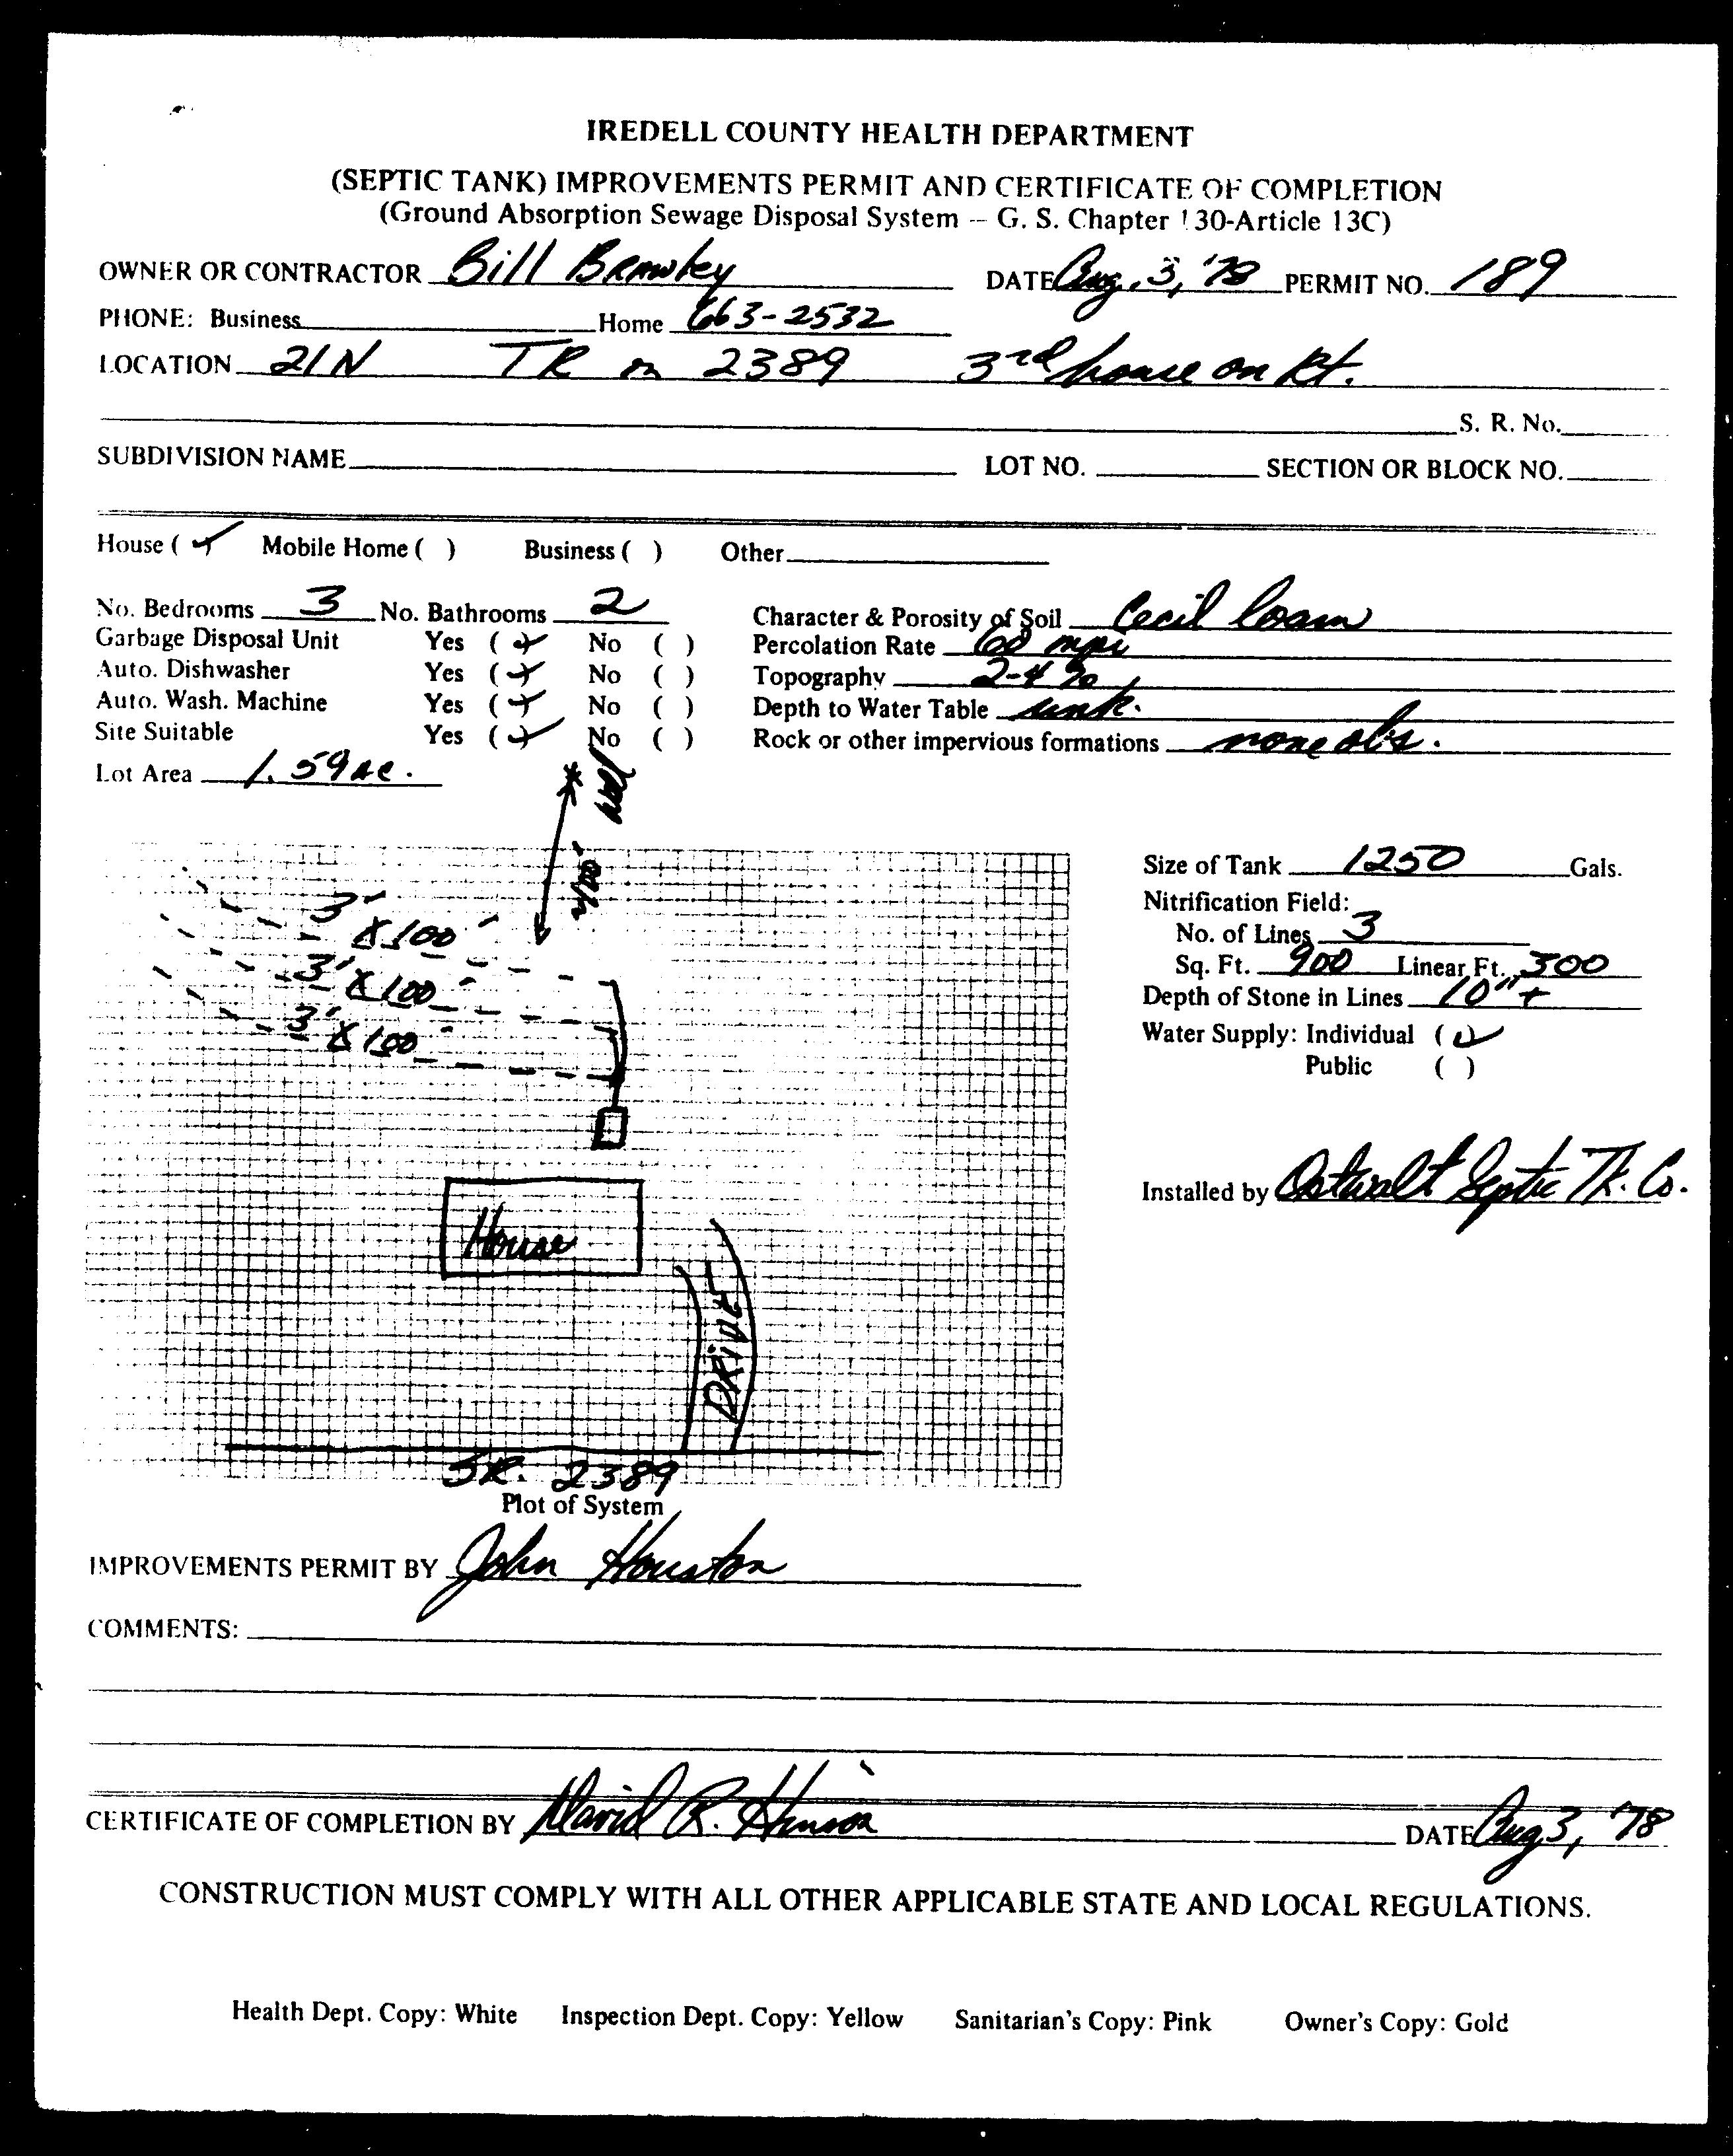 IREDELL COUNTY HEALTH DEPARTMENT
(SEPTIC TANK) IMPROVEMENTS PERMIT AND CERTIFICATE OF COMPLETION
(Ground Absorption Sewage Disposal System -- G. S. Chapter 130-Article 13C)
OWNER OR CONTRACTOR Bill Brawley DATE Aug. 3, '78 PERMIT NO. 189
PHONE: Business Home 663-2532
LOCATION 21N TR on 2389 3rd house on Rt.
S. R. No.
SUBDIVISION NAME LOT NO. SECTION OR BLOCK NO.
House ( ✓ ) Mobile Home ( ) Business ( ) Other
No. Bedrooms 3 No. Bathrooms 2 Character & Porosity of Soil Cecil loam
Garbage Disposal Unit Yes ( ✓ ) No ( ) Percolation Rate 60 mpi
Auto. Dishwasher Yes ( ✓ ) No ( ) Topography 2-4 %
Auto. Wash. Machine Yes ( ✓ ) No ( ) Depth to Water Table unk.
Site Suitable Yes ( ✓ ) No ( ) Rock or other impervious formations none obs.
Lot Area 1.59 ac.
well
100'
Size of Tank 1250 Gals.
Nitrification Field:
No. of Lines 3
Sq. Ft. 900 Linear Ft. 300
Depth of Stone in Lines 10" +
Water Supply: Individual ( ✓ )
Public ( )
Installed by Ostwalt Septic Tk. Co.
3' X 100'
3' X 100'
3' X 100'
House
DRIVE
SR. 2389
Plot of System
IMPROVEMENTS PERMIT BY John Houston
COMMENTS:
CERTIFICATE OF COMPLETION BY David R. DATE Aug 3, '78
CONSTRUCTION MUST COMPLY WITH ALL OTHER APPLICABLE STATE AND LOCAL REGULATIONS.
Health Dept. Copy: White Inspection Dept. Copy: Yellow Sanitarian's Copy: Pink Owner's Copy: Gold